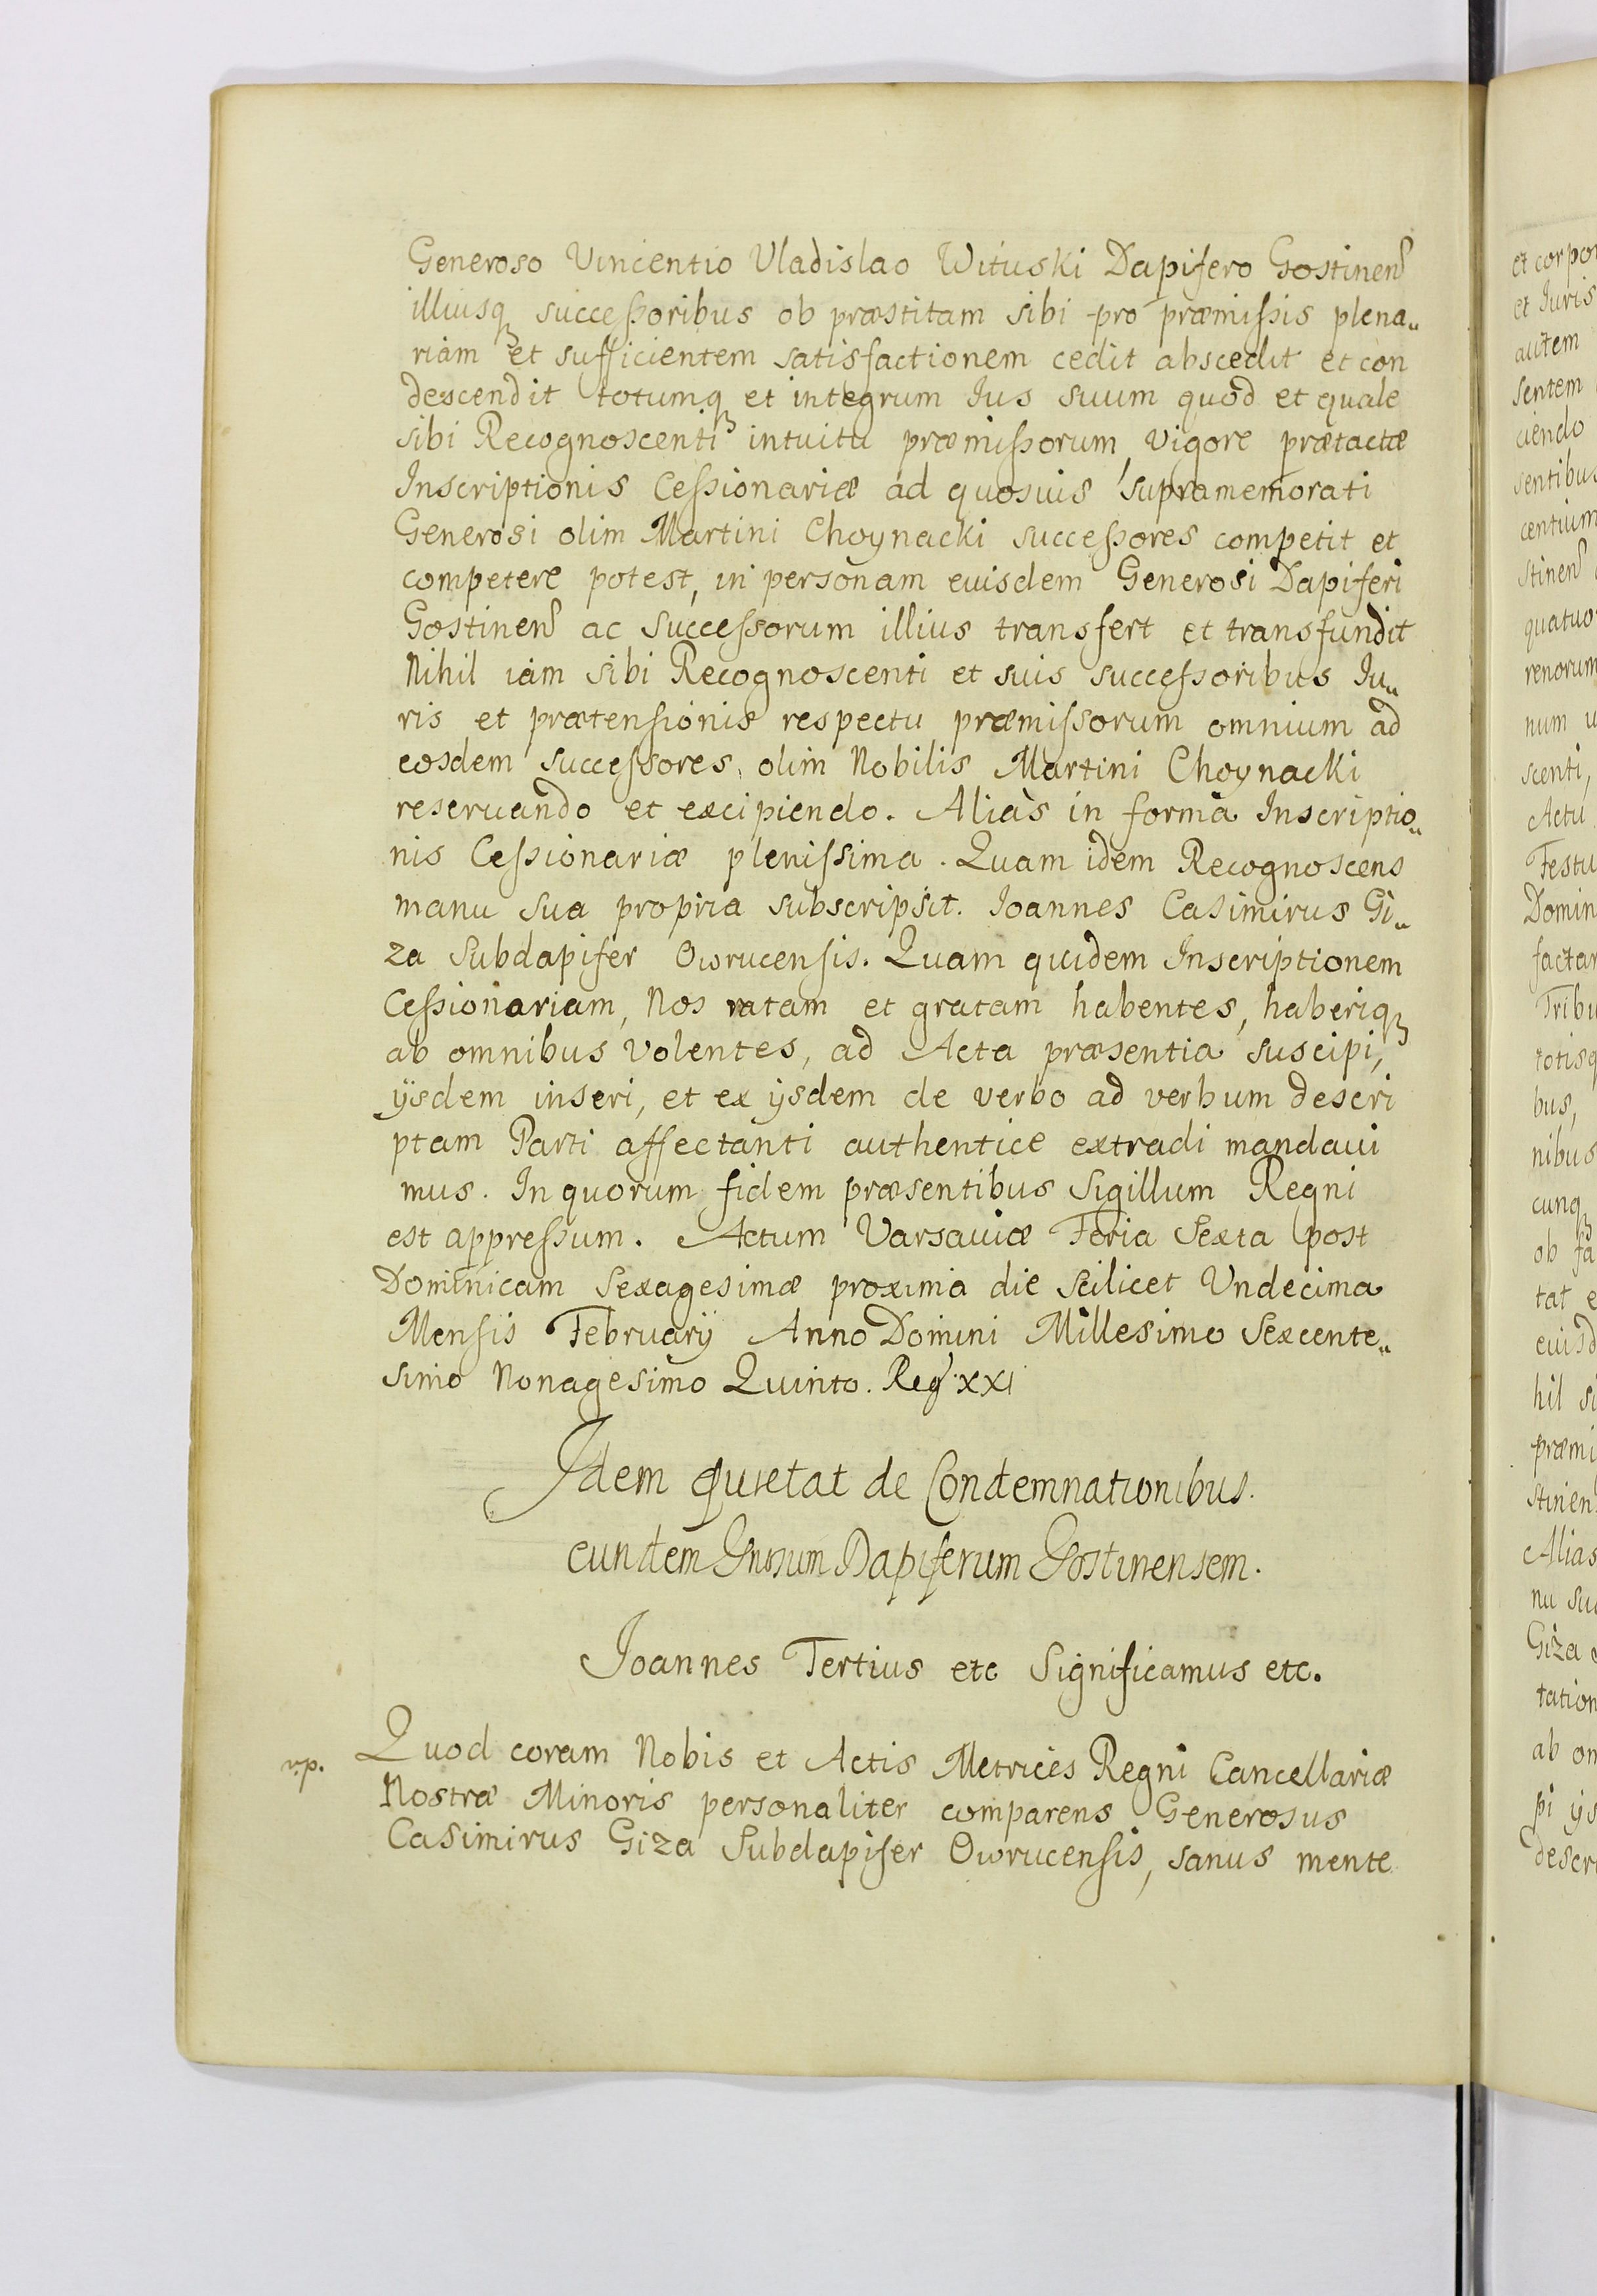 Generoso Vincentio Vladislao Wituski Dapifero Gostinens
illiusq successoribus ob præstitam sibi pro præmissis plena„
riam et sufficientem satisfactionem cedit abscedit et con
descendit totumq et integrum Ius suum quod et quale
sibi Recognoscenti intuitu præmissorum vigore prætactæ
Inscriptionis Cessionariæ ad quosuis supramemorati
Generosi olim Martini Choynacki successores competit et
competere potest, in personam euisdem Generosi Dapiferi
Gostinens ac Successorum illius transfert et transfundit
Nihil iam sibi Recognoscenti et suis successoribus Iu„
ris et prætensionis respectu præmissorum omnium ad
eosdem successores olim Nobilis Martini Choynacki
reseruando et excipiendo. Aliàs in forma Inscriptio„
nis Cessionariæ plenissima. Quam idem Recognoscens
manu sua propria subscripsit. Ioannes Casimirus Gi„
za Subdapifer Owrucensis. Quam quidem Inscriptionem
Cessionariam, Nos ratam et gratam habentes, haberiq
ab omnibus volentes, ad Acta præsentia suscipi,
ijsdem inseri, et ex ijsdem de verbo ad verbum descri
ptam Parti affectanti authentice extradi mandaui
mus. In quorum fidem præsentibus Sigillum Regni
est appressum. Actum Varsauiæ Feria Sexta post
Dominicam Sexagesimæ proxima die scilicet Vndecima
Mensis Februarij Anno Domini Millesimo Sexcente„
simo Nonagesimo Quinto. Reg. XXI
Idem Quietat de Condemnationibus.
eundem Gnosum Dapiferum Gostinensem.
Ioannes Tertius etc Significamus etc.
v.p. Quod coram Nobis et Actis Metrices Regni Cancellariæ
Nostræ Minoris personaliter comparens Generosus
Casimirus Giza Subdapifer Owrucensis, sanus mente
et corpor
et Iuris
autem
sentem
ciendo
sentibus
centium
stinens
quatuo
renorum
num u
scenti,
Actu
Festu
Domin
factar
Tribu
totisq
bus,
nibus
cunq
ob fa
tat e
euisd
hil si
præmi
stinens
Alias
nu su
Giza
tation
ab om
pi ijs
descri